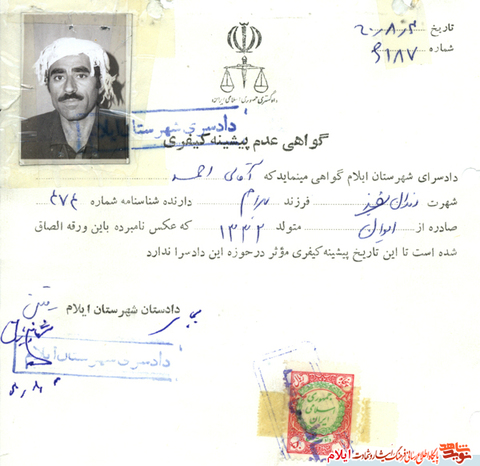 تاریخ
شماره ۶۱۸۷
دادگستری جمهوری اسلامی ایران
دادسرای شهرستان ایلام
گواهی عدم پیشینه کیفری
دادسرای شهرستان ایلام گواهی مینماید که آقای احمد
شهرت فرزند بهرام دارنده شناسنامه شماره ۴۷۴
صادره از ایوان متولد ۱۳۳۲ که عکس نامبرده باین ورقه الصاق
شده است تا این تاریخ پیشینه کیفری مؤثر در حوزه این دادسرا ندارد
دادستان شهرستان ایلام
دادسرای شهرستان ایلام
جمهوری
اسلامی
ایران
نوید شاهد
پایگاه اطلاع رسانی فرهنگ ایثار و شهادت ایلام